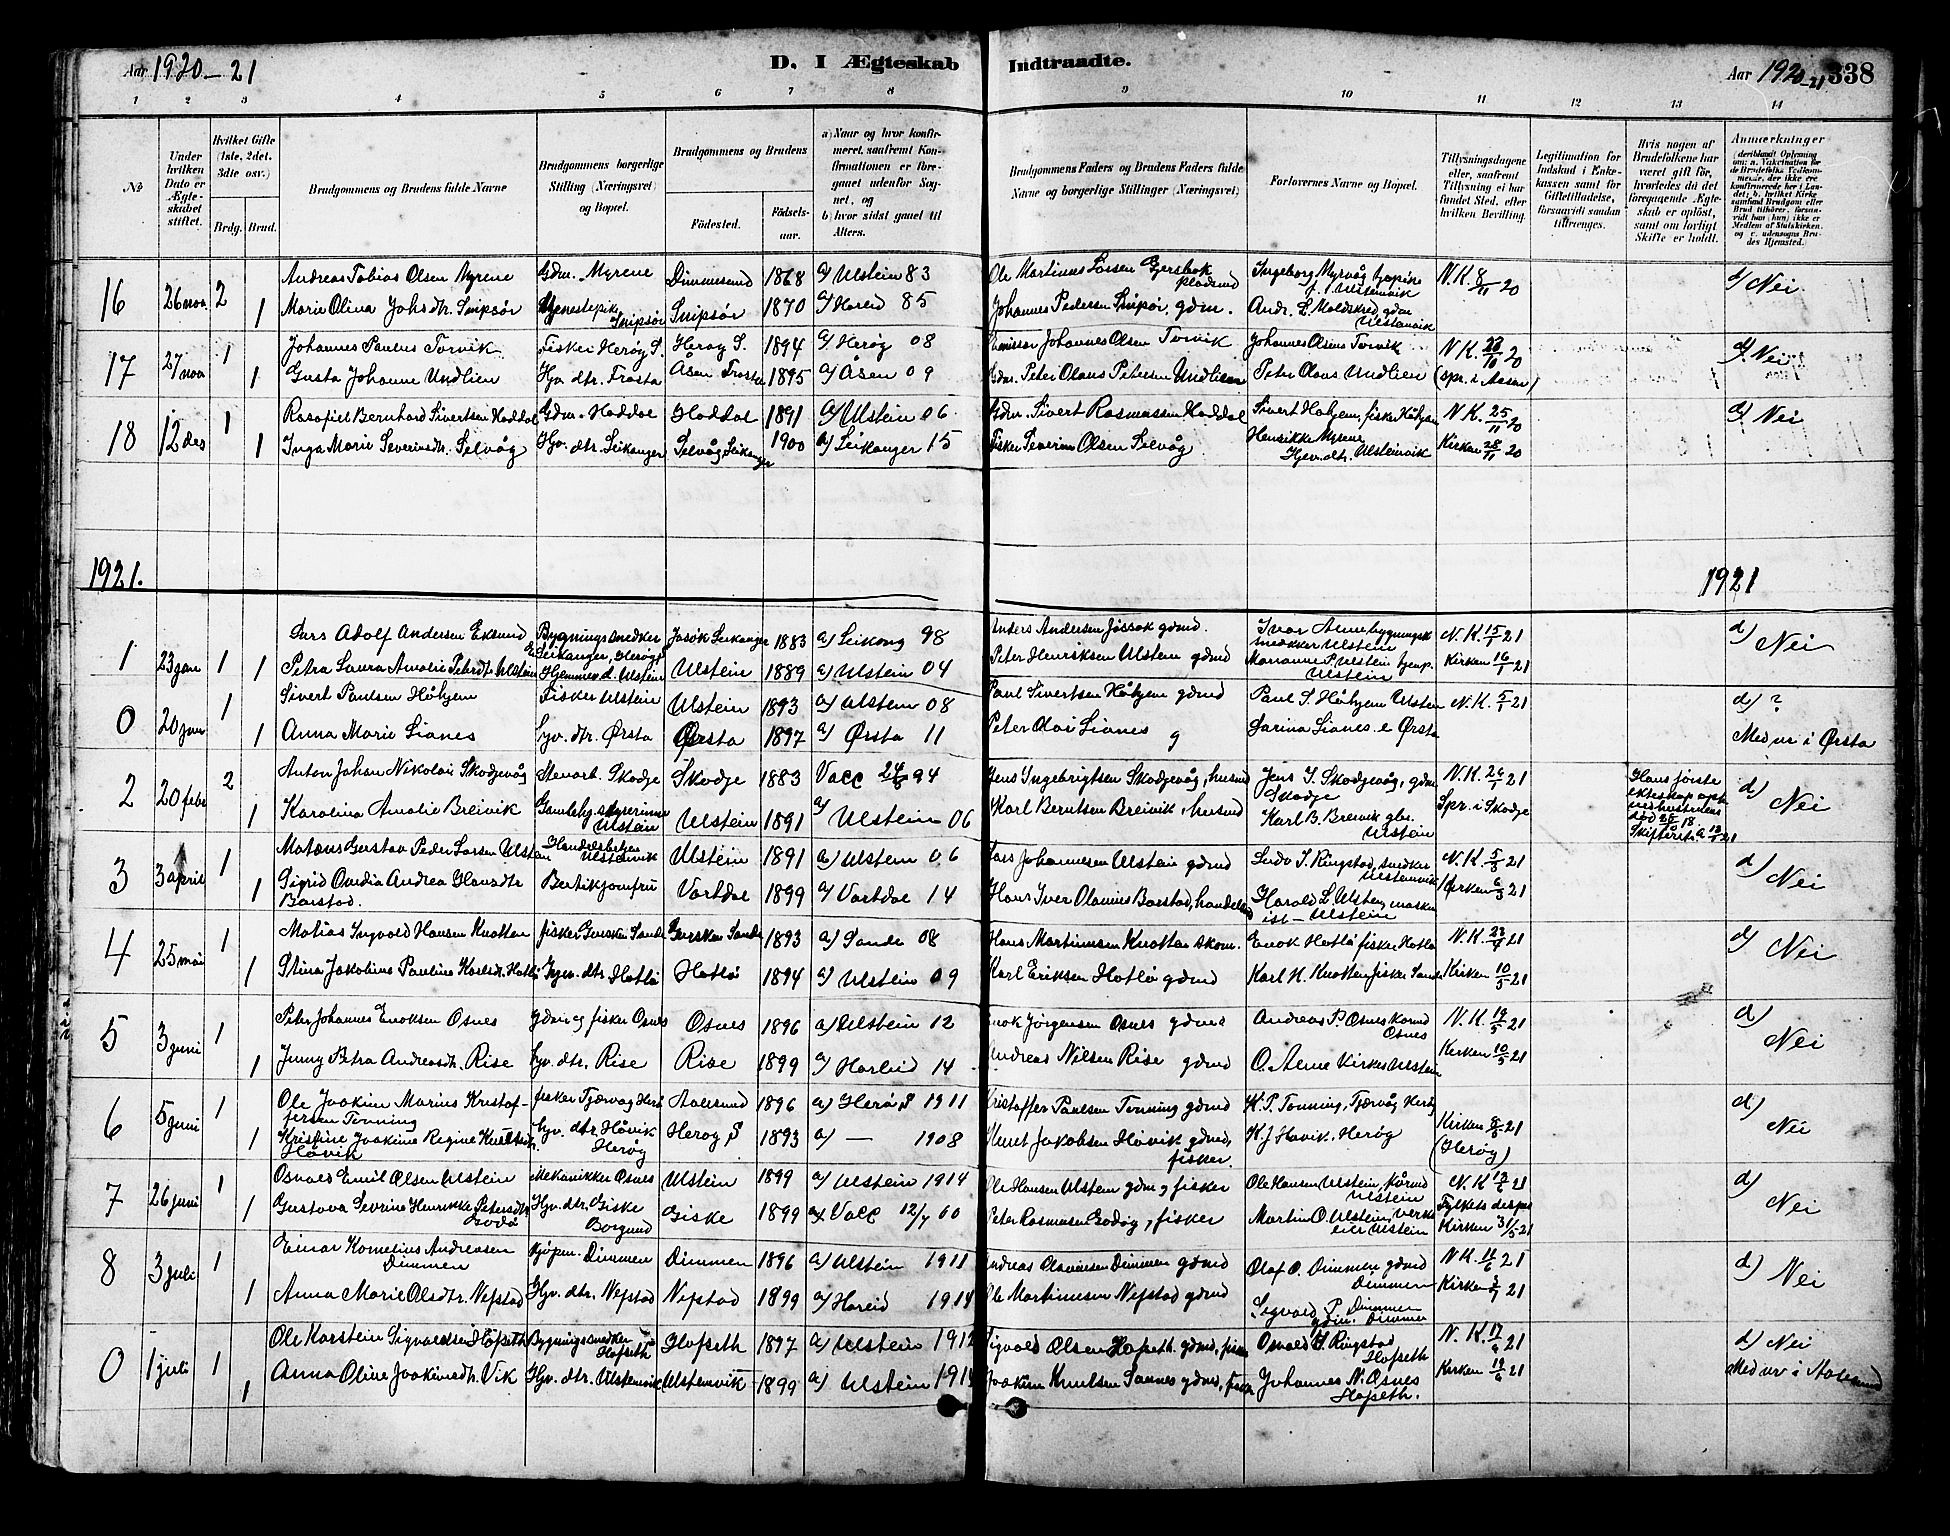 Aar 1920-21
D. I Ægteskab Indtraadte.
Aar 1920-21 338
1 2 3 4 5 6 7 8 9 10 11 12 13 14
No
Under hvilken Dato er Ægteskabet stiftet.
Hvilket Gifte (1ste, 2det, 3die osv.)
Brdg. Brud.
Brudgommens og Brudens fulde Navne
Brudgommens borgerlige Stilling (Næringsvei) og Bopæl.
Brudgommens og Brudens
Födested. Födselsaar.
a) Naar og hvor konfirmeret, saafremt Konfirmationen er foregaaet udenfor Sognet, og
b) hvor sidst gaaet til Alters.
Brudgommens Faders og Brudens Faders fulde Navne og borgerlige Stillinger (Næringsvei)
Forlovernes Navne og Bopæl.
Tillysningsdagene eller, saafremt Tillysning ei har fundet Sted, efter hvilken Bevilling.
Legitimation for Indskud i Enkekassen samt for Giftetilladelse, forsaavidt saadan tiltrænges.
Hvis nogen af Brudefolkene har været gift før, hvorledes da det foregaaende Ægteskab er oplöst, samt om lovligt Skifte er holdt.
Anmærkninger
16 26 nov. 2 Andreas Tobias Olsen Myrene Gdm. Myrene Dimmesund 1868 a) Ulstein 83 Ole Martinus Lassen N.K. 8/11 20 d) Nei
1 Marie Oliva Johsdtr. Snipsör Snipsör Snipsör 1870 a) Hareid 85 Johannes Pedersen Snipsör, gdm. Ulstenvik
17 27 nov 1 Johannes Paulus Torvik Fisker Heröy S. Heröy S. 1894 a) Heröy 08 Johannes Olsen Torvik Johannes Olsen Torvik N.K. 28/10 20 d) Nei
1 Gusta Johanne Undlien Hjv. dtr. Frosta Åsen Frosta 1895 a) Åsen 09 Gdm. Peter Olaus Petersen Undlien Peter Olaus Undlien (spr. i Aasen)
18 12 des 1 Rasafiel Bernhard Sivertsen Haddal Gdm. Haddal Haddal 1891 a) Ulstein 06 Gdm. Sivert Rasmussen Haddal N.K. 25/11 20 d) Nei
1 Inga Marie Severinsdtr. Selvåg Hjv. dtr. Leikanger Selvåg Leikanger 1900 a) Leikanger 15 Fisker Severin Olsen Selvåg Henrikke Myrene Hjev. dtr. Ulsteinvik Kirken 28/11 20
1921. 1921
1 23 jan 1 Lars Adolf Andersen Eksund Bygningssnedker Leikanger, Heröy Jösök Leikanger 1883 a) Leikong 98 Anders Andersen Jössok gdmd. Ivar Alme bygningssnedker Ulstein N.K. 15/1 21 d) Nei
1 Petra Laura Amalie Petersdtr Ulstein Hjemmev. d. Ulstein Ulstein 1889 a) Ulstein 04 Peter Henriksen Ulstein gdmd Marianne P. Ulstein Ulstein Kirken 16/1 21
0 20 jan 1 Sivert Paulsen Håhjem Fisker Ulstein Ulstein 1893 a) Ulstein 08 Paul Sivertsen Håhjem gdmd Paul S. Håhjem Ulstein N.K. 5/1 21 d) ?
1 Anna Marie Lianes hjv. dtr. Ørsta Ørsta 1897 a) Ørsta 11 Peter Olai Lianes g Sarina Lianes e Ørsta Medvv i Ørsta
2 20 febr 2 Anton Johan Nikolai Skodjevåg Stenarb. Skodje Skodje 1883 Vacc 94 Jens Ingebrigtsen Skodjevåg, husmd Jens I. Skodjevåg, gdm Skodje N.K. 26/1 21 Hans første ekteskap opl. ved hustruens død d) Nei
1 Karolina Amalie Breivik Ulstein Ulstein 1891 a) Ulstein 06 Karl Berntsen Breivik, husmd Karl B. Breivik gbr. Ulstein Spr. i Skodje
3 3 april 1 Matæus Gustav Peder Larsen Ulstein Handelsbetjen Ulstenvik Ulstein 1891 a) Ulstein 06 Lars Johannesen Ulstein gdmd Ludv S. Ringstad, snedker Ulstenvik N.K. 5/3 21 d) Nei
1 Sigrid Ovidia Andrea Hansdtr Barstad. Butikjomfru Vartdal 1899 a) Vartdal 14 Hans Iver Olavius Barstad, handelsmd Harald L. Ulstein, maskinist - Ulstein Kirken 6/3 21
4 25 mai 1 Matias Ingvald Hansen Knotten fisker Gursken Sande Gursken Sande 1893 a) Sande 08 Hans Martinussen Knotten skom. Enok Hatlö fisker Hatlö N.K. 23/4 21 d) Nei
1 Stina Jakobine Pauline Karlsdtr. Hatlö Hjv. dtr Hatlö Hatlö 1894 a) Ulstein 09 Karl Eriksen Hatlö gdmd Karl H. Knotten fisker Sande Kirken 10/5 21
5 3 juni 1 Peter Johannes Enoksen Osnes gdm og fisker Osnes Osnes 1896 a) Ulstein 12 Enok Jørgensen Osnes gdmd Andreas P. Osnes Osnes N.K. 19/5 21 d) Nei
1 Jenny Petra Andreasdtr. Rise hjv. dtr. Rise Rise 1899 a) Hareid 14 Andreas Nilsen Rise gdmd O. Alme Kirkes Ulstein Kirken 10/5 21
6 5 juni 1 Ole Joakim Marius Kristoffersen Tenning fisker Tjørvåg Herö Aalesund 1896 a) Herö S 1911 Kristoffer Paulsen Tenning gdmd K. P. Tenning, Tjørvåg Heröy Kirken 8/5 21 d) Nei
1 Kristine Joakime Regine Knutsdtr. Håvik hjv. dtr Håvik Heröy Heroy S 1893 a) — 1908 Knut Jakobsen Håvik gdmd, fisker. K. J. Håvik, Herøy (Herøy)
7 26 juni 1 Osvald Emil Olsen Ulstein Mekanikker Osnes Ulstein 1899 a) Ulstein 1914 Ole Hansen Ulstein gdm og fisker Ole Hansen Ulstein, Ulstein N.K. 12/6 21 d) Nei
1 Gustava Sevrine Henrikke Petersdtr Godö Hjv. dtr. Giske Borgund Giske 1899 Vacc 12/7 00 Peter Rasmusen Godöy, fisker Martin O. Ulstein, verkseier Ulstein Fylkets dispens Kirken 31/5 21
8 3 juli 1 Einar Kornelius Andreasen Dimmen Kjøpm. Dimmen Dimmen 1896 a) Ulstein 1911 Andreas Olavsen Dimmen gdmd Olaf O. Dimmen gdmd Dimmen N.K. 16/6 21 d) Nei
1 Anna Marie Olsdtr. Nesstad Hjv. dtr. Nesstad Nesstad 1899 a) Hareid 1914 Ole Martinusen Nesstad gdmd Sigvald P. Dimmen gdm. Dimmen Kirken 21
0 1 juli 1 Ole Karstein Sigvaldsen Hofseth Bygningssnedker Hofseth Hofseth 1897 a) Ulstein 1912 Sigvald Olsen Hofseth gdmd, fisker Osvald S. Ringstad Hofseth N.K. 17/6 21 d) Nei
1 Anna Oline Joakimsdtr. Vik Hjv. dtr. Ulstenvik Ulstenvik 1899 a) Ulstein 1914 Joakim Knutsen Sannes gdmd, fisker Johannes N. Osnes Hofseth. Kirken 19/6 21 Medvv i Aalesund